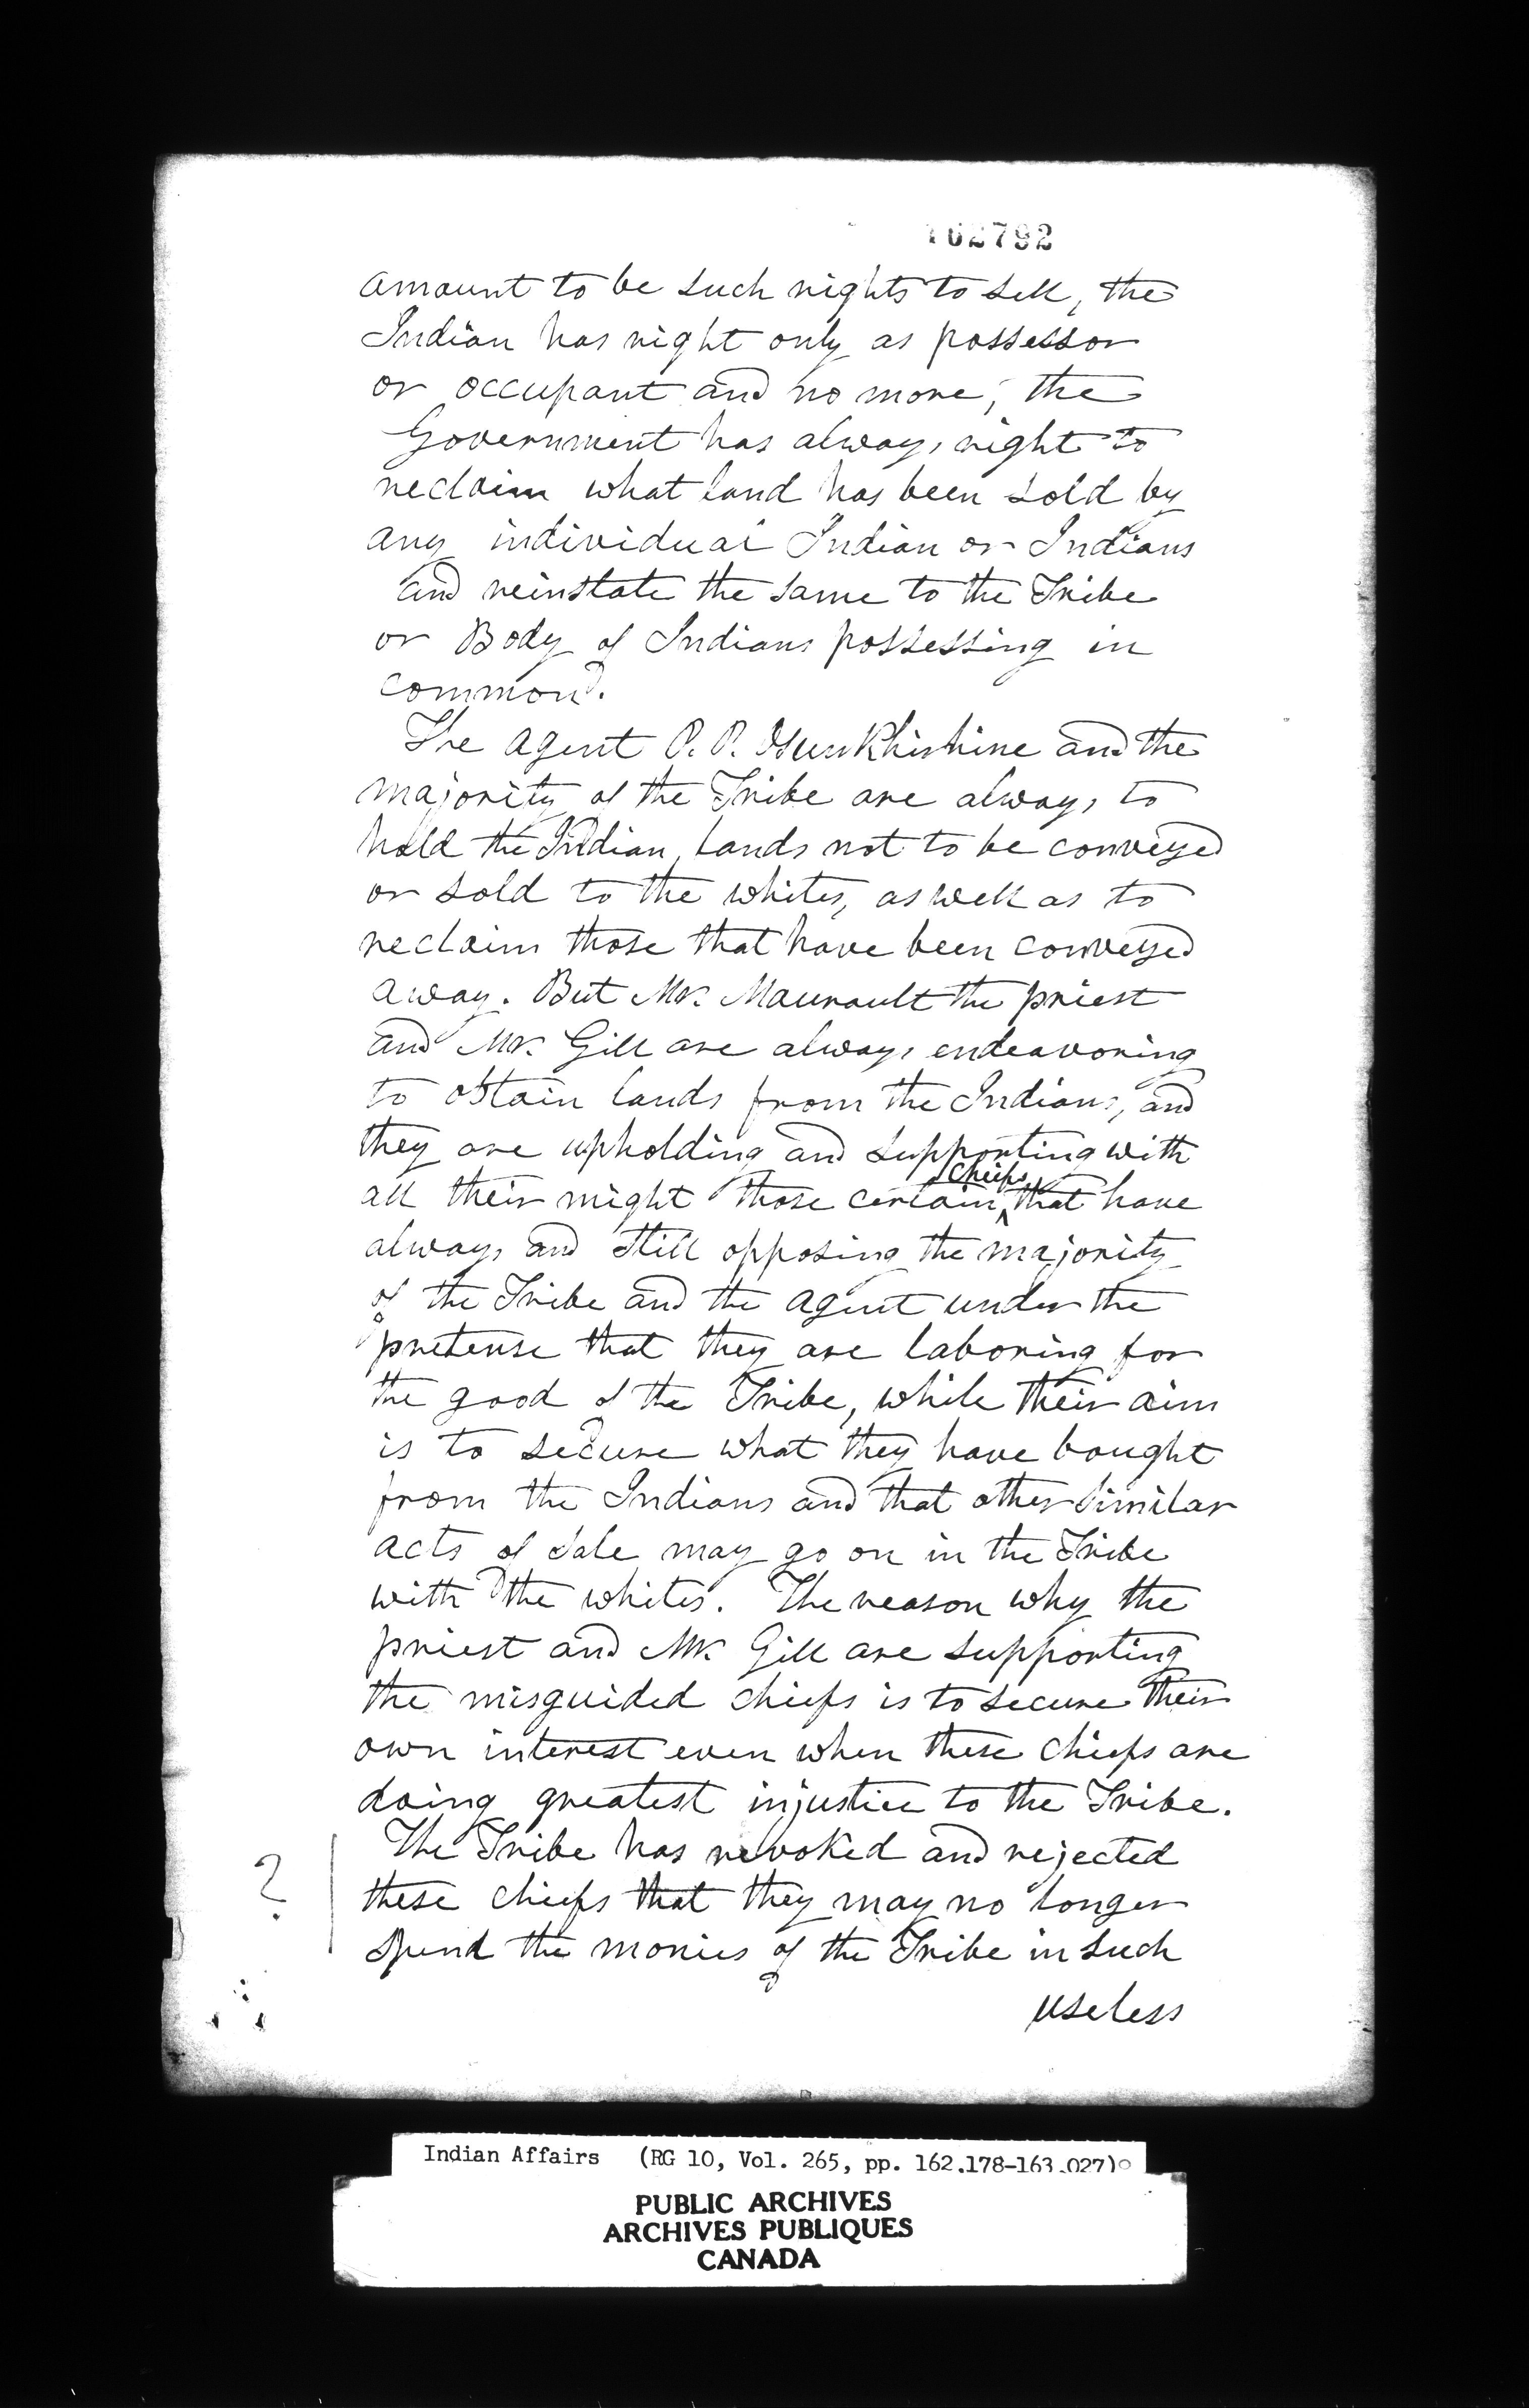 162792
amount to be such rights to sell, the
Indian has right only as possessor
or occupant and no more, the
Government has always right to
reclaim what land has been sold by
any individual Indian or Indians
and reinstate the same to the Tribe
or Body of Indians possessing in
common.
The agent P. P. Osunkhirhine and the
majority of the Tribe are always to
hold the Indian lands not to be conveyed
or sold to the whites, as well as to
reclaim those that have been conveyed
away. But Mr. Maurault the priest
and Mr. Gill are always endeavoring
to obtain lands from the Indians, and
they are upholding and supporting with
chiefs
all their might those certain that have
always and still opposing the majority
of the Tribe and the agent under the
pretense that they are laboring for
the good of the Tribe, while their aim
is to secure what they have bought
from the Indians and that other similar
acts of sale may go on in the Tribe
with the whites. The reason why the
priest and Mr. Gill are supporting
the misguided chiefs is to secure their
own interest even when these chiefs are
doing greatest injustice to the Tribe.
The Tribe has revoked and rejected
? these chiefs that they may no longer
spend the monies of the Tribe in such
useless
Indian Affairs (RG 10, Vol. 265, pp. 162.178-163.027)
PUBLIC ARCHIVES
ARCHIVES PUBLIQUES
CANADA